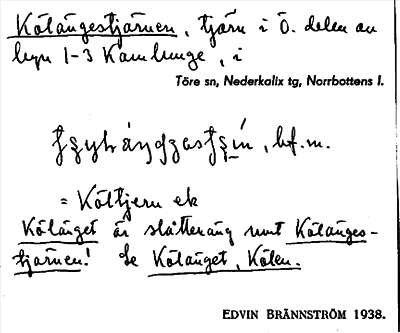 Kölängestjärnen, tjärn i Ö. delen av
byn 1-3 Kamlunge, i
Töre sn, Nederkalix tg, Norrbottens l.
bf. m.
= Költjern ek
Kölänget är slåtteräng runt Kölänges-
tjärnen! Se Kölänget, Kölen.
EDVIN BRÄNNSTRÖM 1938.